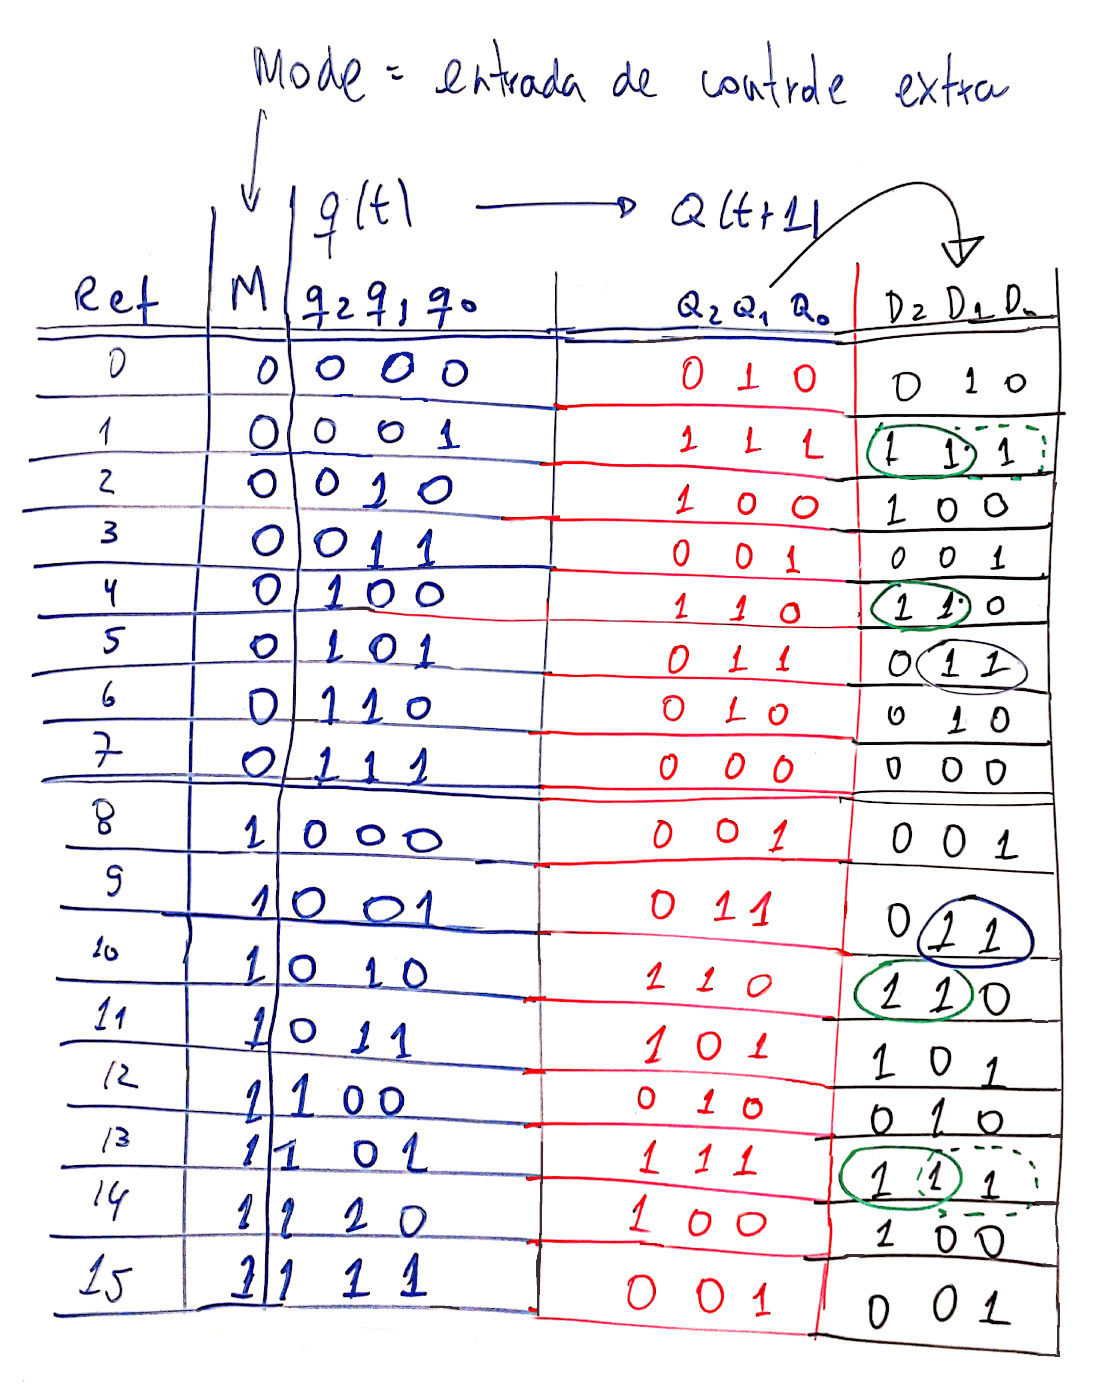 Mode = entrada de controle extra
q(t) → Q(t+1)
Ref M q2 q1 q0 Q2 Q1 Q0 D2 D1 D0
0 0 0 0 0 0 1 0 0 1 0
1 0 0 0 1 1 1 1 1 1 1
2 0 0 1 0 1 0 0 1 0 0
3 0 0 1 1 0 0 1 0 0 1
4 0 1 0 0 1 1 0 1 1 0
5 0 1 0 1 0 1 1 0 1 1
6 0 1 1 0 0 1 0 0 1 0
7 0 1 1 1 0 0 0 0 0 0
8 1 0 0 0 0 0 1 0 0 1
9 1 0 0 1 0 1 1 0 1 1
10 1 0 1 0 1 1 0 1 1 0
11 1 0 1 1 1 0 1 1 0 1
12 1 1 0 0 0 1 0 0 1 0
13 1 1 0 1 1 1 1 1 1 1
14 1 1 1 0 1 0 0 1 0 0
15 1 1 1 1 0 0 1 0 0 1